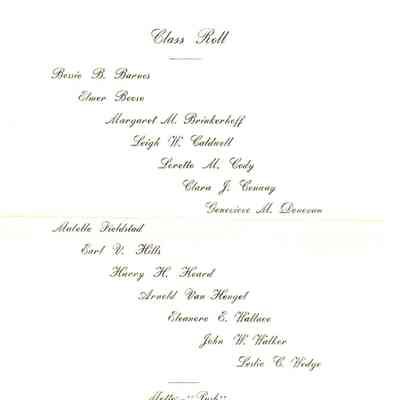 Class Roll
Bessie B. Barnes
Elmer Boose
Margaret M. Brinkerhoff
Leigh W. Caldwell
Loretto M. Cody
Clara J. Conaay
Genevieve M. Donovan
Matelle Fieldstad
Earl V. Hills
Harry H. Heard
Arnold Van Hengel
Eleanore E. Wallace
John W. Walker
Leslie C. Wedge
Motto—"Push"